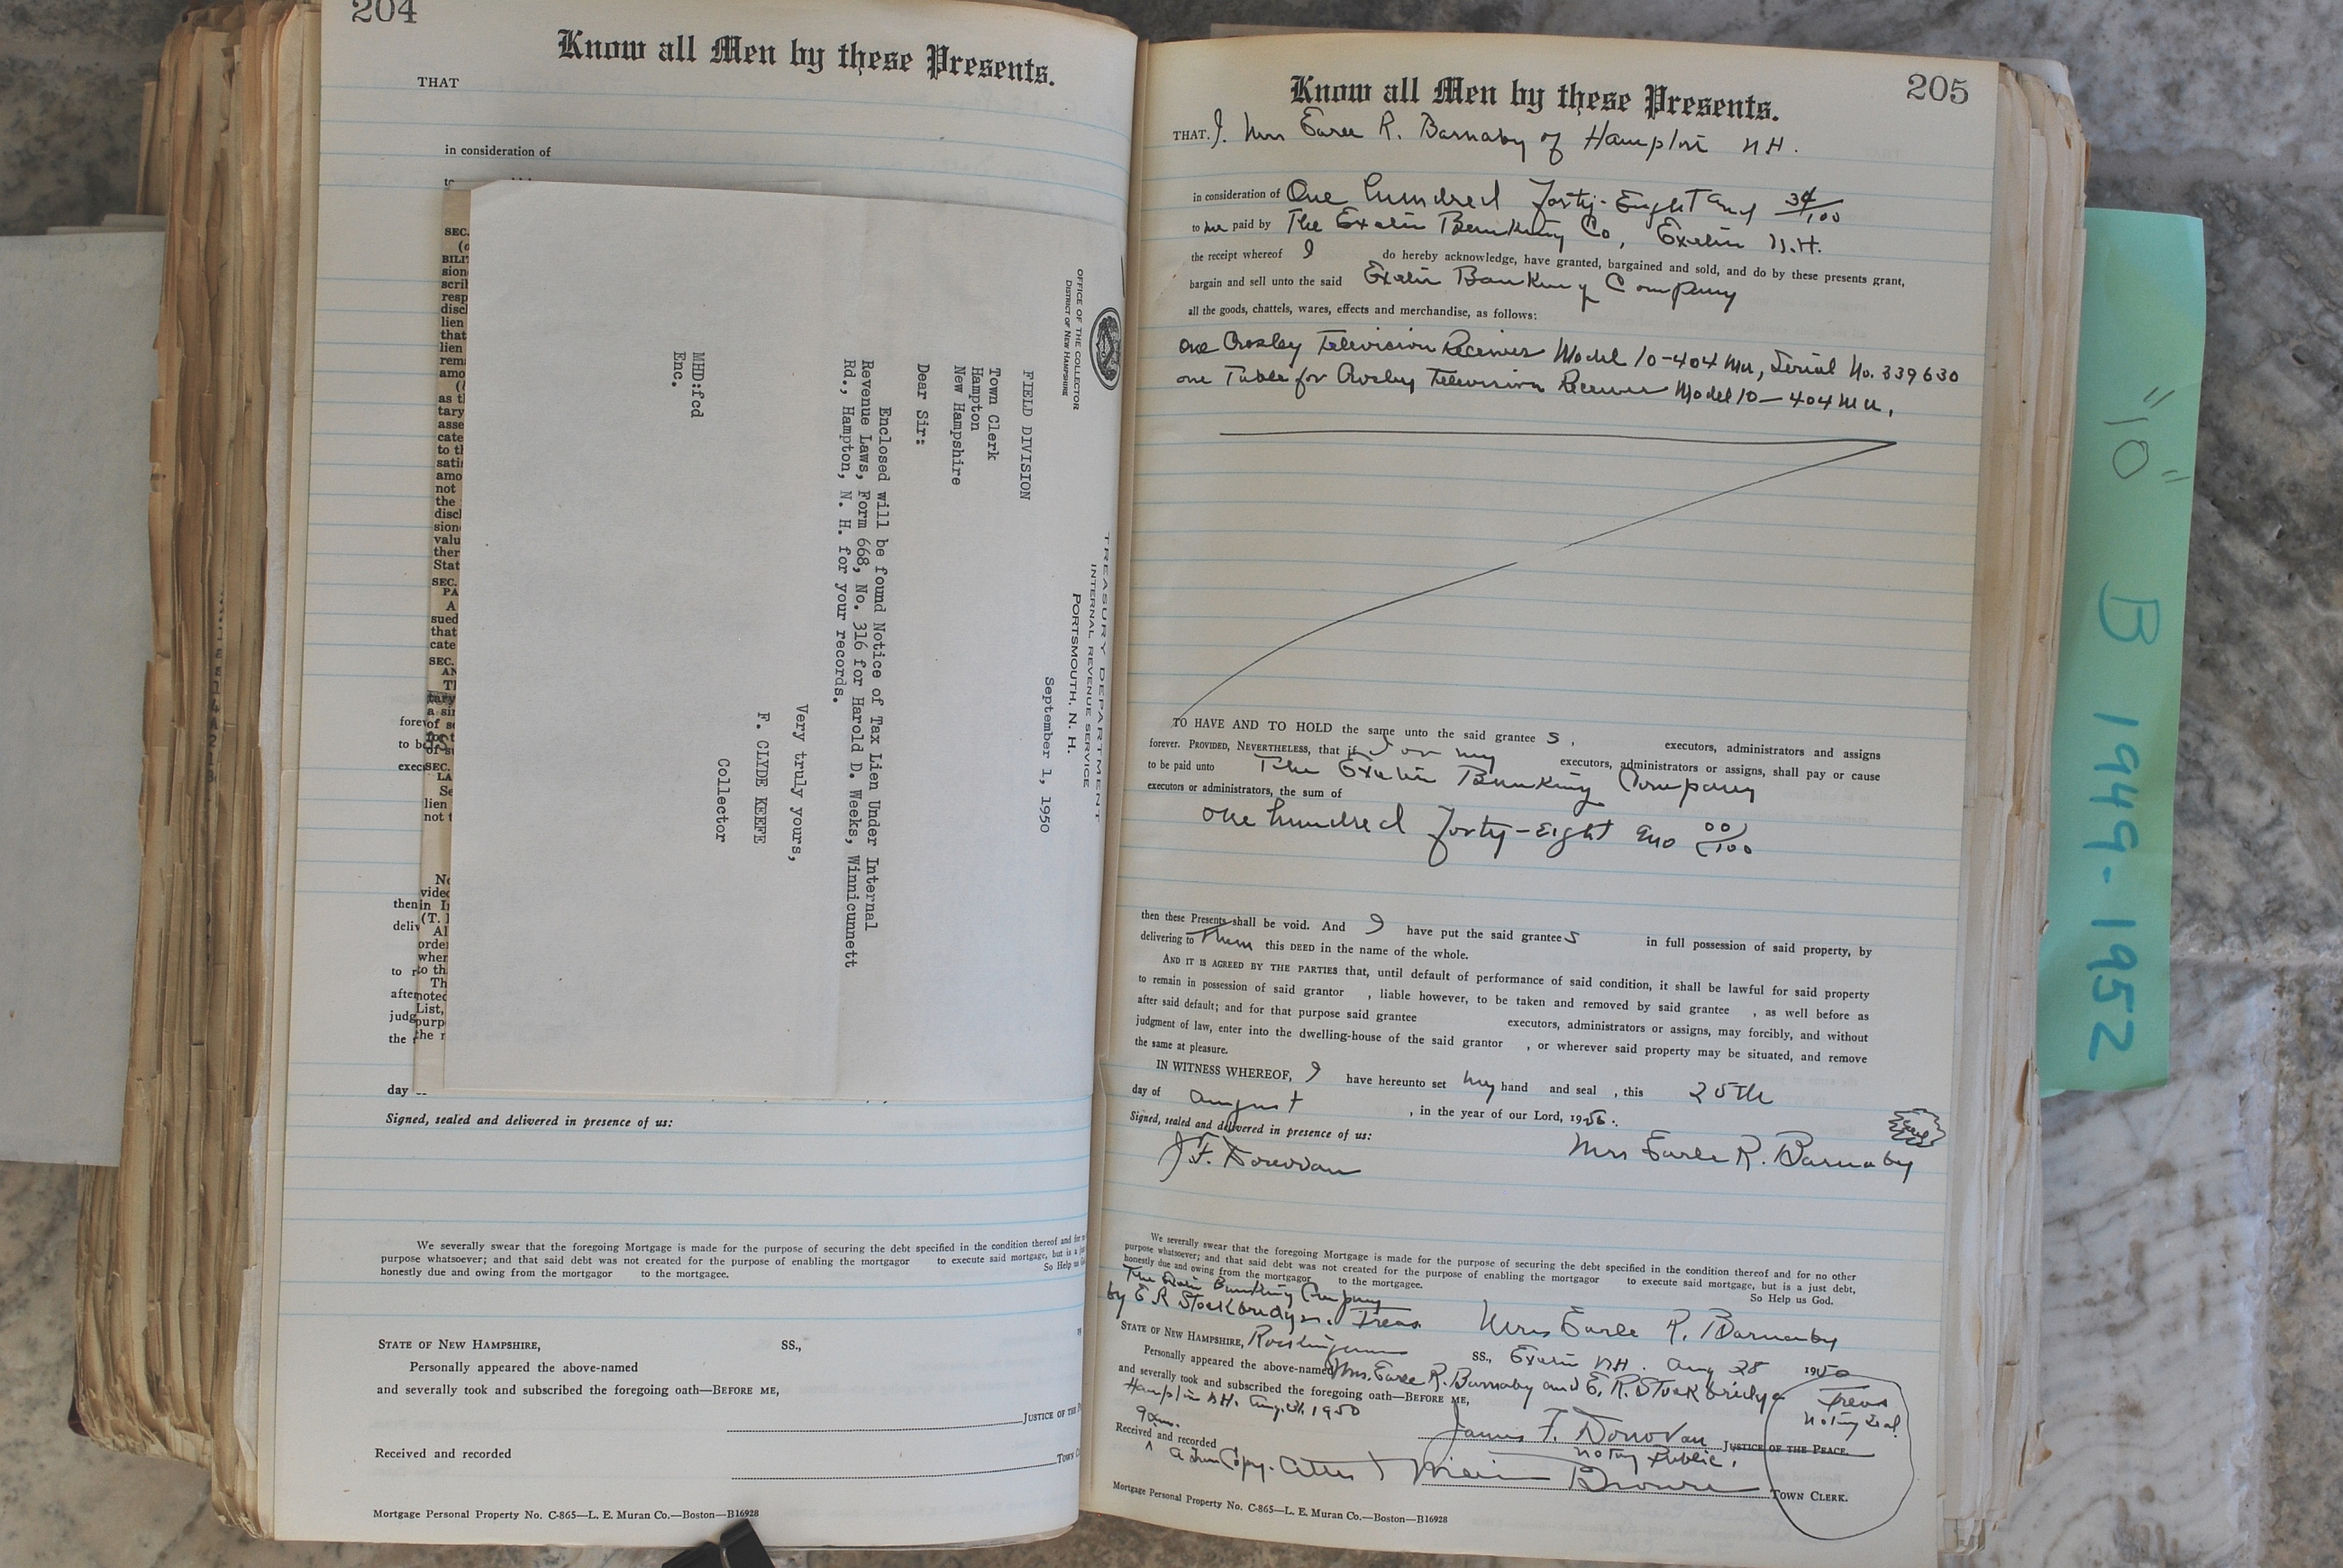 204
Know all Men by these Presents.
THAT
in consideration of
SEC.
BILIT
sion
scrib
resp
discl
lien
that
lien
rem
amo
as th
tary
asse
cate
to th
satis
amo
not
the
discl
sion
valu
ther
Stat
SEC.
PA
A
sued
that
cate
SEC.
AN
lien
not t
OFFICE OF THE COLLECTOR
DISTRICT OF NEW HAMPSHIRE
TREASURY DEPARTMENT
INTERNAL REVENUE SERVICE
PORTSMOUTH, N. H.
September 1, 1950
FIELD DIVISION
Town Clerk
Hampton
New Hampshire
Dear Sir:
Enclosed will be found Notice of Tax Lien Under Internal
Revenue Laws, Form 668, No. 316 for Harold D. Weeks, Winnicunnett
Rd., Hampton, N. H. for your records.
Very truly yours,
F. CLYDE KEEFE
Collector
MHD:fcd
Enc.
day
Signed, sealed and delivered in presence of us:
We severally swear that the foregoing Mortgage is made for the purpose of securing the debt specified in the condition thereof and for
purpose whatsoever; and that said debt was not created for the purpose of enabling the mortgagor to execute said mortgage, but is a
honestly due and owing from the mortgagor to the mortgagee. So Help us
STATE OF NEW HAMPSHIRE, SS.,
Personally appeared the above-named
and severally took and subscribed the foregoing oath—BEFORE ME,
JUSTICE OF THE
Received and recorded
TOWN
Mortgage Personal Property No. C-865—L. E. Muran Co.—Boston—B16928
205
Know all Men by these Presents.
THAT I. Mrs Earle R. Barnaby of Hampton NH.
in consideration of One hundred Forty-Eight and 34/100
to me paid by The Exeter Banking Co, Exeter N.H.
the receipt whereof I do hereby acknowledge, have granted, bargained and sold, and do by these presents grant,
bargain and sell unto the said Exeter Banking Company
all the goods, chattels, wares, effects and merchandise, as follows:
One Crosley Television Receiver Model 10-404 Mu, Serial No. 339630
one Table for Crosley Television Receiver Model 10-404 Mu,
TO HAVE AND TO HOLD the same unto the said grantee s, executors, administrators and assigns
forever. PROVIDED, NEVERTHELESS, that if I or my executors, administrators or assigns, shall pay or cause
to be paid unto The Exeter Banking Company
executors or administrators, the sum of
one hundred forty-eight and 00/100
then these Presents shall be void. And I have put the said grantees in full possession of said property, by
delivering to Them this DEED in the name of the whole.
AND IT IS AGREED BY THE PARTIES that, until default of performance of said condition, it shall be lawful for said property
to remain in possession of said grantor , liable however, to be taken and removed by said grantee , as well before as
after said default; and for that purpose said grantee executors, administrators or assigns, may forcibly, and without
judgment of law, enter into the dwelling-house of the said grantor , or wherever said property may be situated, and remove
the same at pleasure.
IN WITNESS WHEREOF, I have hereunto set my hand and seal , this 25th
day of August , in the year of our Lord, 1950.
Signed, sealed and delivered in presence of us:
J F. Donovan Mrs Earle R. Barnaby Seal
We severally swear that the foregoing Mortgage is made for the purpose of securing the debt specified in the condition thereof and for no other
purpose whatsoever; and that said debt was not created for the purpose of enabling the mortgagor to execute said mortgage, but is a just debt,
honestly due and owing from the mortgagor to the mortgagee. So Help us God.
The Exeter Banking Company
by E R Stockbridge. Treas Mrs Earle R. Barnaby
STATE OF NEW HAMPSHIRE, Rockingham SS., Exeter NH. Aug 28 1950
Personally appeared the above-named Mrs. Earle R. Barnaby and E. R. Stockbridge Treas
and severally took and subscribed the foregoing oath—BEFORE ME, Notary Seal
Hampton NH. Aug. 31. 1950
James F. Donovan JUSTICE OF THE PEACE
Notary Public.
9 am.
Received and recorded
A True Copy. Attest William Brown TOWN CLERK.
Mortgage Personal Property No. C-865—L. E. Muran Co.—Boston—B16928
"10" B 1949-1952